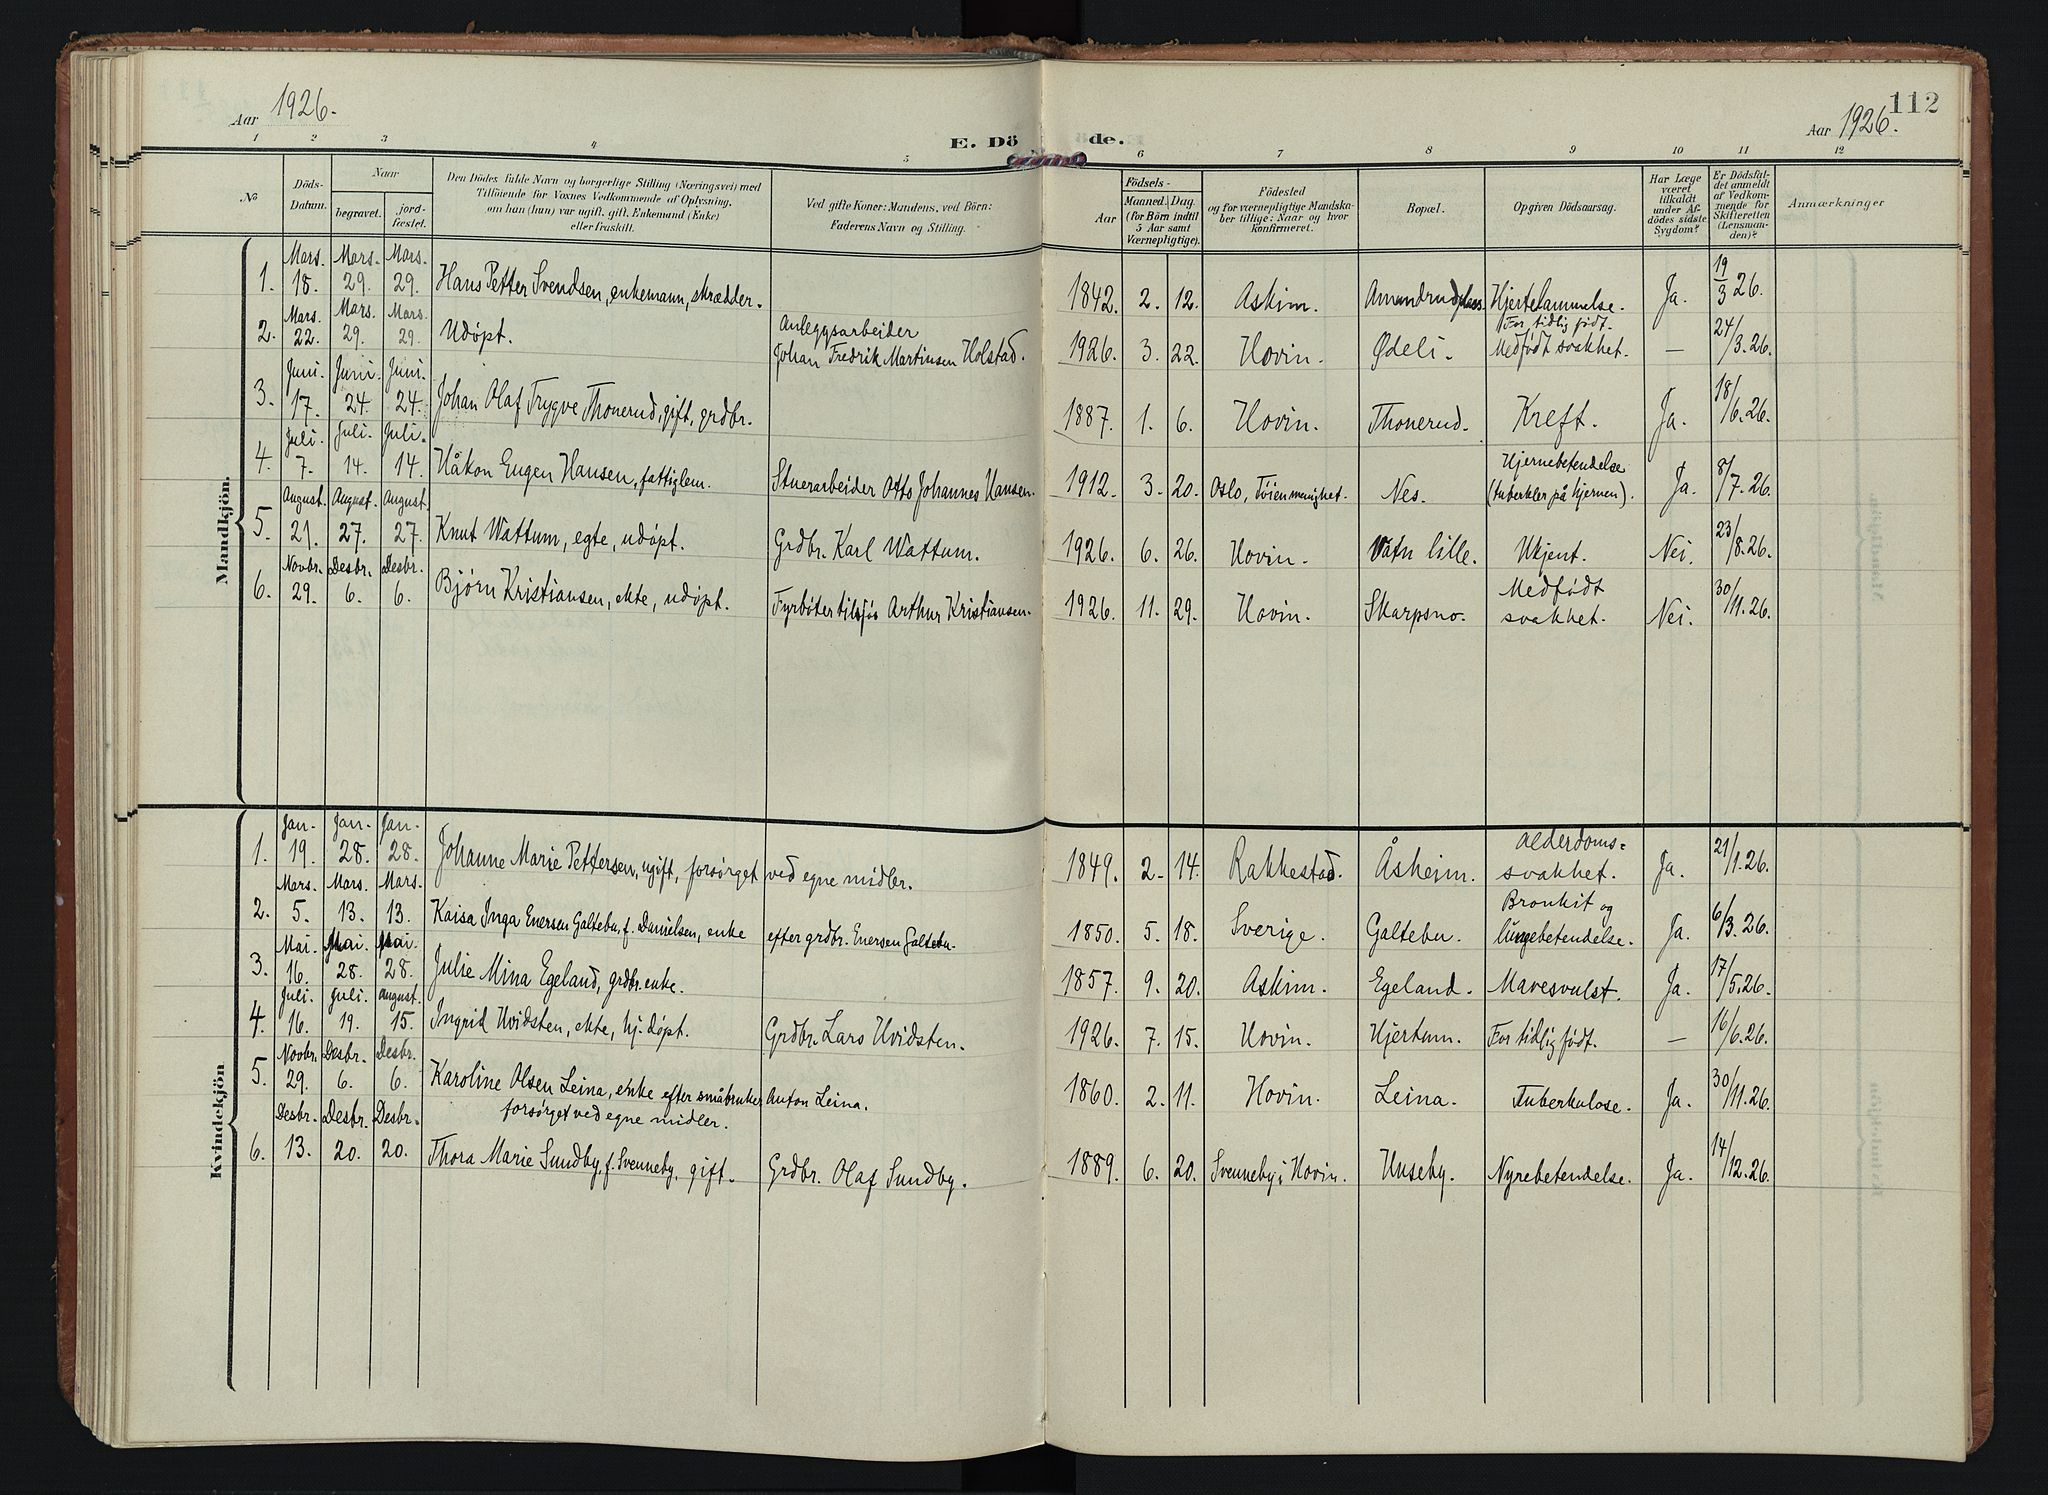 112
Aar 1926.
Aar 1926.
E. Döde.
1 2 3 4 5 6 7 8 9 10 11 12
No
Döds-Datum.
Naar
begravet.
jordfæstet.
Den Dödes fulde Navn og borgerlige Stilling (Næringsvei) med
Tilföiende for Voxnes Vedkommende af Oplysning,
om han (hun) var ugift, gift, Enkemand (Enke)
eller fraskilt.
Ved gifte Koner: Mandens, ved Börn:
Faderens Navn og Stilling.
Födsels-
Aar
Maaned. Dag.
(for Börn indtil
5 Aar samt
Værnepligtige).
Födested
og for værnepligtige Mandskaber tillige: Naar og hvor
Konfirmeret.
Bopæl.
Opgiven Dödsaarsag.
Har Læge
været
tilkaldt
under Afdödes sidste
Sygdom?
Er Dödsfaldet anmeldt
af Vedkommende for
Skifteretten
(Lensmanden)?
Anmærkninger
Mandkjön.
1. Mars. 18. Mars. 29. Mars. 29. Hans Petter Svendsen, enkemann, skrædder. 1842. 2. 12. Askim. Amundrudplass. Hjertelammelse. Ja. 19/3 26.
2. Mars. 22. Mars. 29. Mars. 29. Udøpt. Anleggsarbeider Johan Fredrik Martinsen Holstad. 1926. 3. 22. Hovin. Ødeli. For tidlig født. Medfødt svakhet. — 24/3.26.
3. Juni. 17. Juni. 24. Juni. 24. Johan Olaf Trygve Thonerud, gift, grdbr. 1887. 1. 6. Hovin. Thonerud. Kreft. Ja. 18/6.26.
4. Juli. 7. Juli. 14. Juli. 14. Håkon Eugen Hansen, fattiglem. Stuerarbeider Otto Johannes Hansen. 1912. 3. 20. Oslo, Tøien menighet. Nes. Hjernebetendelse (tuberkler på hjernen). Ja. 8/7.26.
5. August. 21. August. 27. August. 27. Knut Wattum, egte, udøpt. Grdbr. Karl Wattum. 1926. 6. 26. Hovin. Vatn lille. Ukjent. Nei. 23/8.26.
6. Novbr. 29. Desbr. 6. Desbr. 6. Bjørn Kristiansen, ekte, udøpt. Fyrbøter tilsjøs Arthur Kristiansen. 1926. 11. 29. Hovin. Skarpsno. Medfødt svakhet. Nei. 30/11.26.
Kvindekjön
1. Jan. 19. Jan. 28. Jan. 28. Johanne Marie Pettersen, ugift, forsørget ved egne midler. 1849. 2. 14. Rakkestad. Åsheim. Alderdoms-svakhet. Ja. 21/1.26.
2. Mars. 5. Mars. 13. Mars. 13. Kaisa Inga Enersen Galtebu, f. Danielsen, enke efter grdbr. Enersen Galtebu. 1850. 5. 18. Sverige. Galtebu. Bronkit og lungebetendelse. Ja. 6/3.26.
3. Mai. 16. Mai. 28. Mai. 28. Julie Mina Egeland, grdbr. enke. 1857. 9. 20. Askim. Egeland. Mavesvulst. Ja. 17/5.26.
4. Juli. 16. Juli. 19. August. 15. Ingrid Hvidsten, ekte, hj. døpt. Grdbr. Lars Hvidsten. 1926. 7. 15. Hovin. Hjertum. For tidlig født. — 16/6.26.
5. Novbr. 29. Desbr. 6. Desbr. 6. Karoline Olsen Leina, enke efter småbruker Anton Leina. 1860. 2. 11. Hovin. Leina. Tuberkulose. Ja. 30/11.26.
forsørget ved egne midler.
6. Desbr. 13. Desbr. 20. Desbr. 20. Thora Marie Sundby, f. Svenneby, gift. Grdbr. Olaf Sundby. 1889. 6. 20. Svenneby i Hovin. Huseby. Nyrebetendelse. Ja. 14/12.26.